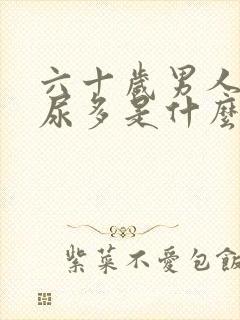 六十歲男人
尿多是什麼
紫菜不愛包飯